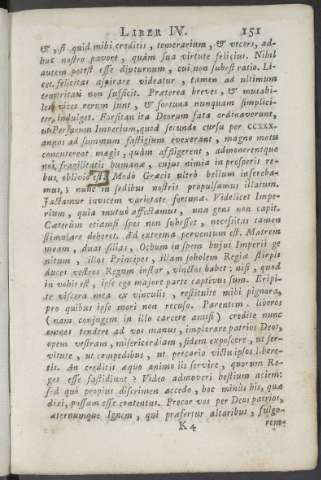 LIBER IV. 151
&, si quid mihi creditis, temerarium, & vecors, ad-
huc nostro pavore, quàm sua virtute felicius. Nihil
autem potest esse diuturnum, cui non subest ratio. Li-
cet felicitas aspirare videatur, tamen ad ultimum
temeritati non sufficit. Praeterea breves, & mutabi-
les vices rerum sunt, & fortuna nunquam simplici-
ter indulget. Forsitan ita Deorum fata ordinaverunt,
ut Persarum Imperium, quod secundo cursu per CCXXX.
annos ad summum fastigium evexerant, magno motu
concuterent magis, quàm affligerent, admonerentque
nos fragilitatis humanae, cujus nimia in prosperis re-
bus oblivio est. Modò Graecis ultrò bellum infereba-
mus, nunc in sedibus nostris propulsamus illatum.
Jactamur invicem varietate fortunae. Videlicet Impe-
rium, quia mutuò affectamus, una gens non capit.
Caeterùm etiamsi spes non subesset, necessitas tamen
stimulare deberet. Ad extrema perventum est. Matrem
meam, duas filias, Ochum in spem hujus Imperii ge-
nitum, illos Principes, illam sobolem Regiae stirpis
duces vestros Regum instar, vinctos habet: nisi, quod
in vobis est, ipse ego majore parte captivus sum. Eripi-
te viscera mea ex vinculis, restituite mihi pignora,
pro quibus ipse mori non recuso. Parentem, liberos
(nam conjugem in illo carcere amisi) credite nunc
omnes tendere ad vos manus, implorare patrios Deos,
opem vestram, misericordiam, fidem exposcere, ut ser-
vitute, ut compedibus, ut precario victu ipsos libere-
tis. An creditis aequo animo iis servire, quorum Re-
ges esse fastidiunt? Video admoveri hostium aciem:
sed quò propius discrimen accedo, hoc minùs his, quae
dixi, possum esse contentus. Precor vos per Deos patrios,
aeternumque Ignem, qui praefertur altaribus, fulgo-
K 4 rem-